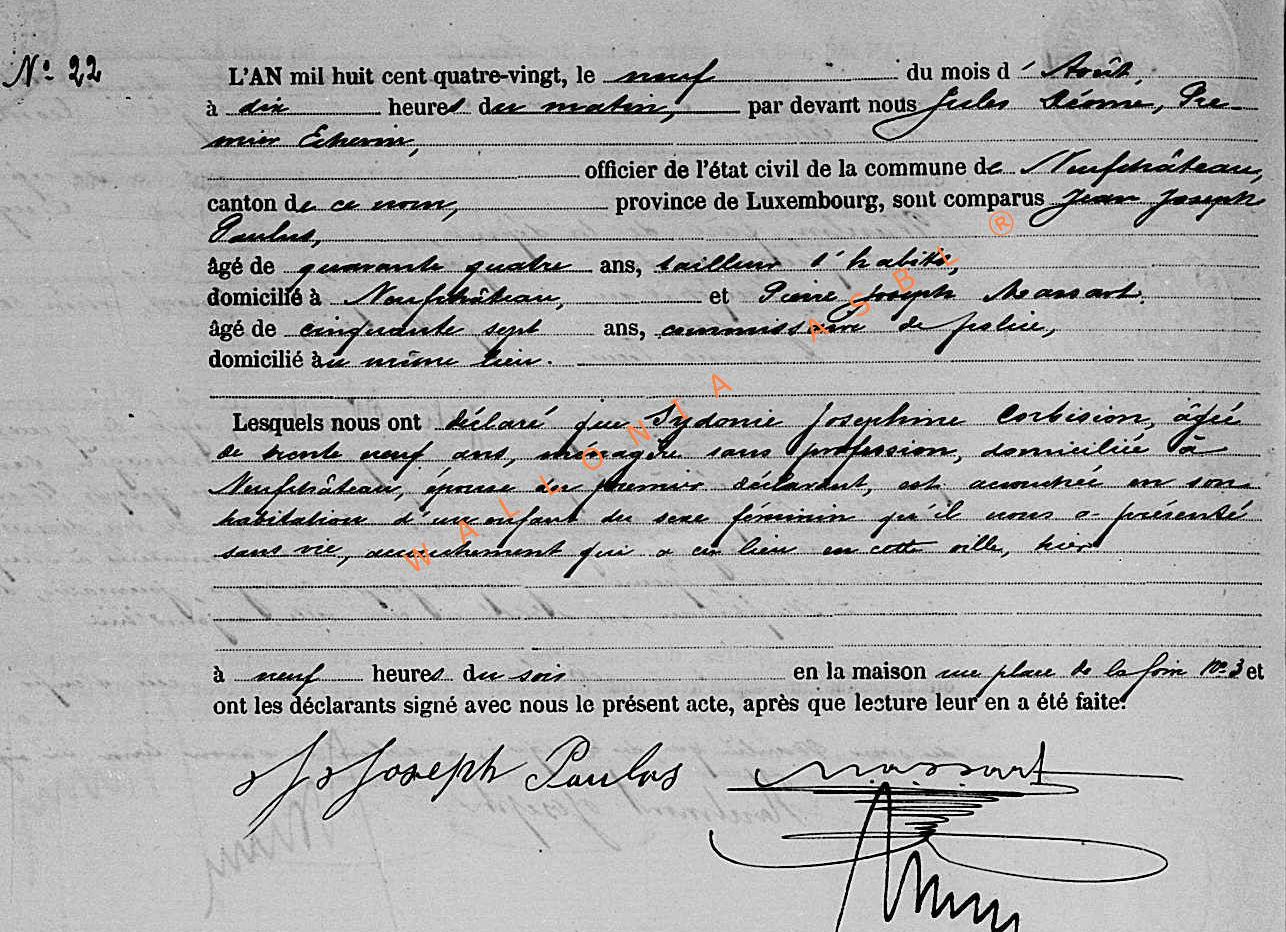 N° 22
L'AN mil huit cent quatre-vingt, le neuf du mois d' Août,
à dix heures du matin, par devant nous Jules Déome, Pre-
mier Echevin,
officier de l'état civil de la commune de Neufchâteau,
canton de ce nom, province de Luxembourg, sont comparus Jean Joseph
Paulus,
âgé de quarante quatre ans, tailleur d'habits,
domicilié à Neufchâteau, et Pierre Joseph Massart,
âgé de cinquante sept ans, commissaire de police,
domicilié au même lieu.
Lesquels nous ont déclaré que Sydonie Josephine Corbision, âgée
de trente neuf ans, ménagère sans profession, domiciliée à
Neufchâteau, épouse du premier déclarant, est accouchée en son
habitation d'un enfant du sexe féminin qu'il nous a présenté
sans vie, accouchement qui a eu lieu en cette ville, hier
à neuf heures du soir en la maison rue place de la foire N° 3 et
ont les déclarants signé avec nous le présent acte, après que lecture leur en a été faite.
J J Joseph Paulus Massart
WALLONIA ASBL ®